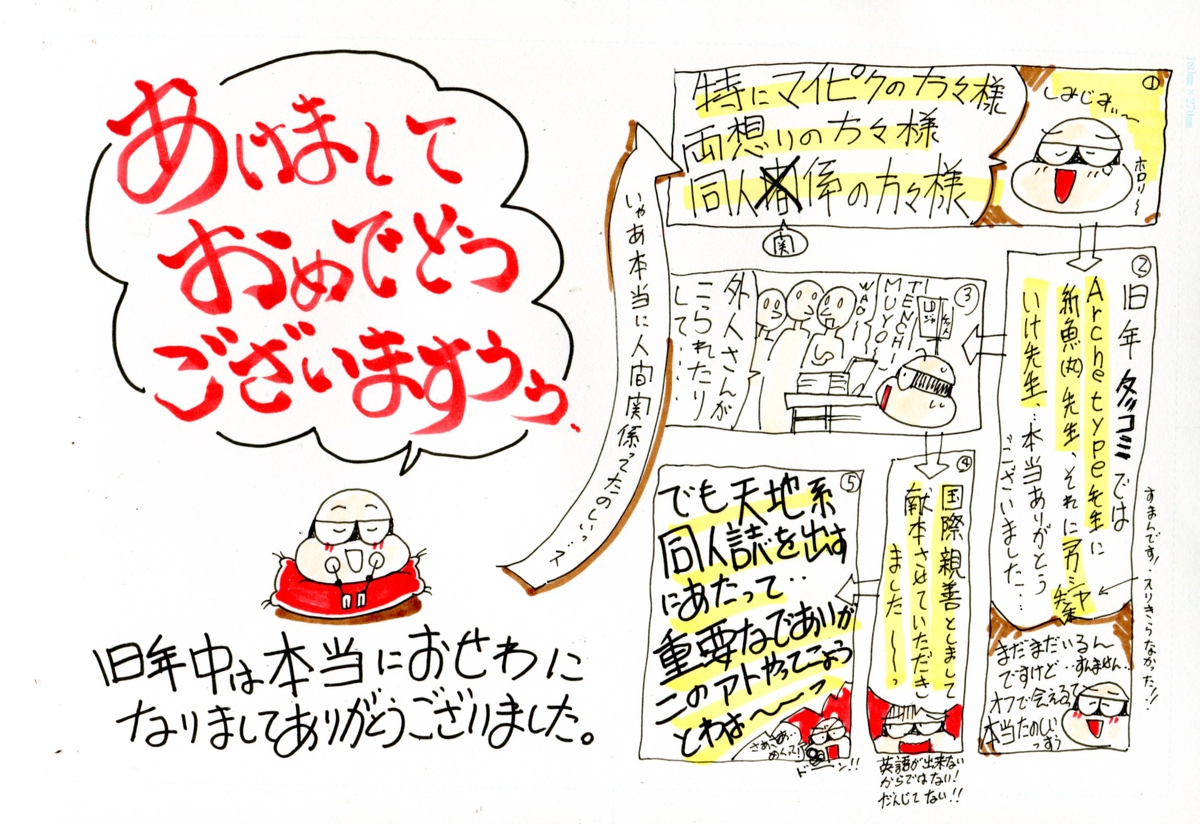 あけまして
おめでとう
ございますうぅ
旧年中は本当におせわに
なりましてありがとうございました。
いやあ本当に人間関係ってたのしいっ
①
特にマイピクの方々様
両想いの方々様
同人係の方々様
関
しみじみ〜
ホロリ〜
②
旧年タッコミでは
Archetype先生に
新魚(丸)先生、それに
いけ先生、…本当ありがとう
ございました…
すまんです!スリきらなかった!!
まだまだいるん
ですけど…すんません…
オフで会えるって
本当たのしい
っすぅ
③
TENCHI
MUYO!
WAO!
外人さんが
こられたり
して…
④
国際親善としまして
献本させていただきし
ました〜〜っ
英語が出来ない
からではない!
だんじてない!!
⑤
でも天地系
同人誌を出す
にあたって‥
重要なでありが
このアトやってこよう
とわぁ〜〜っ
さあさあ…
めくってい
ドーン!!